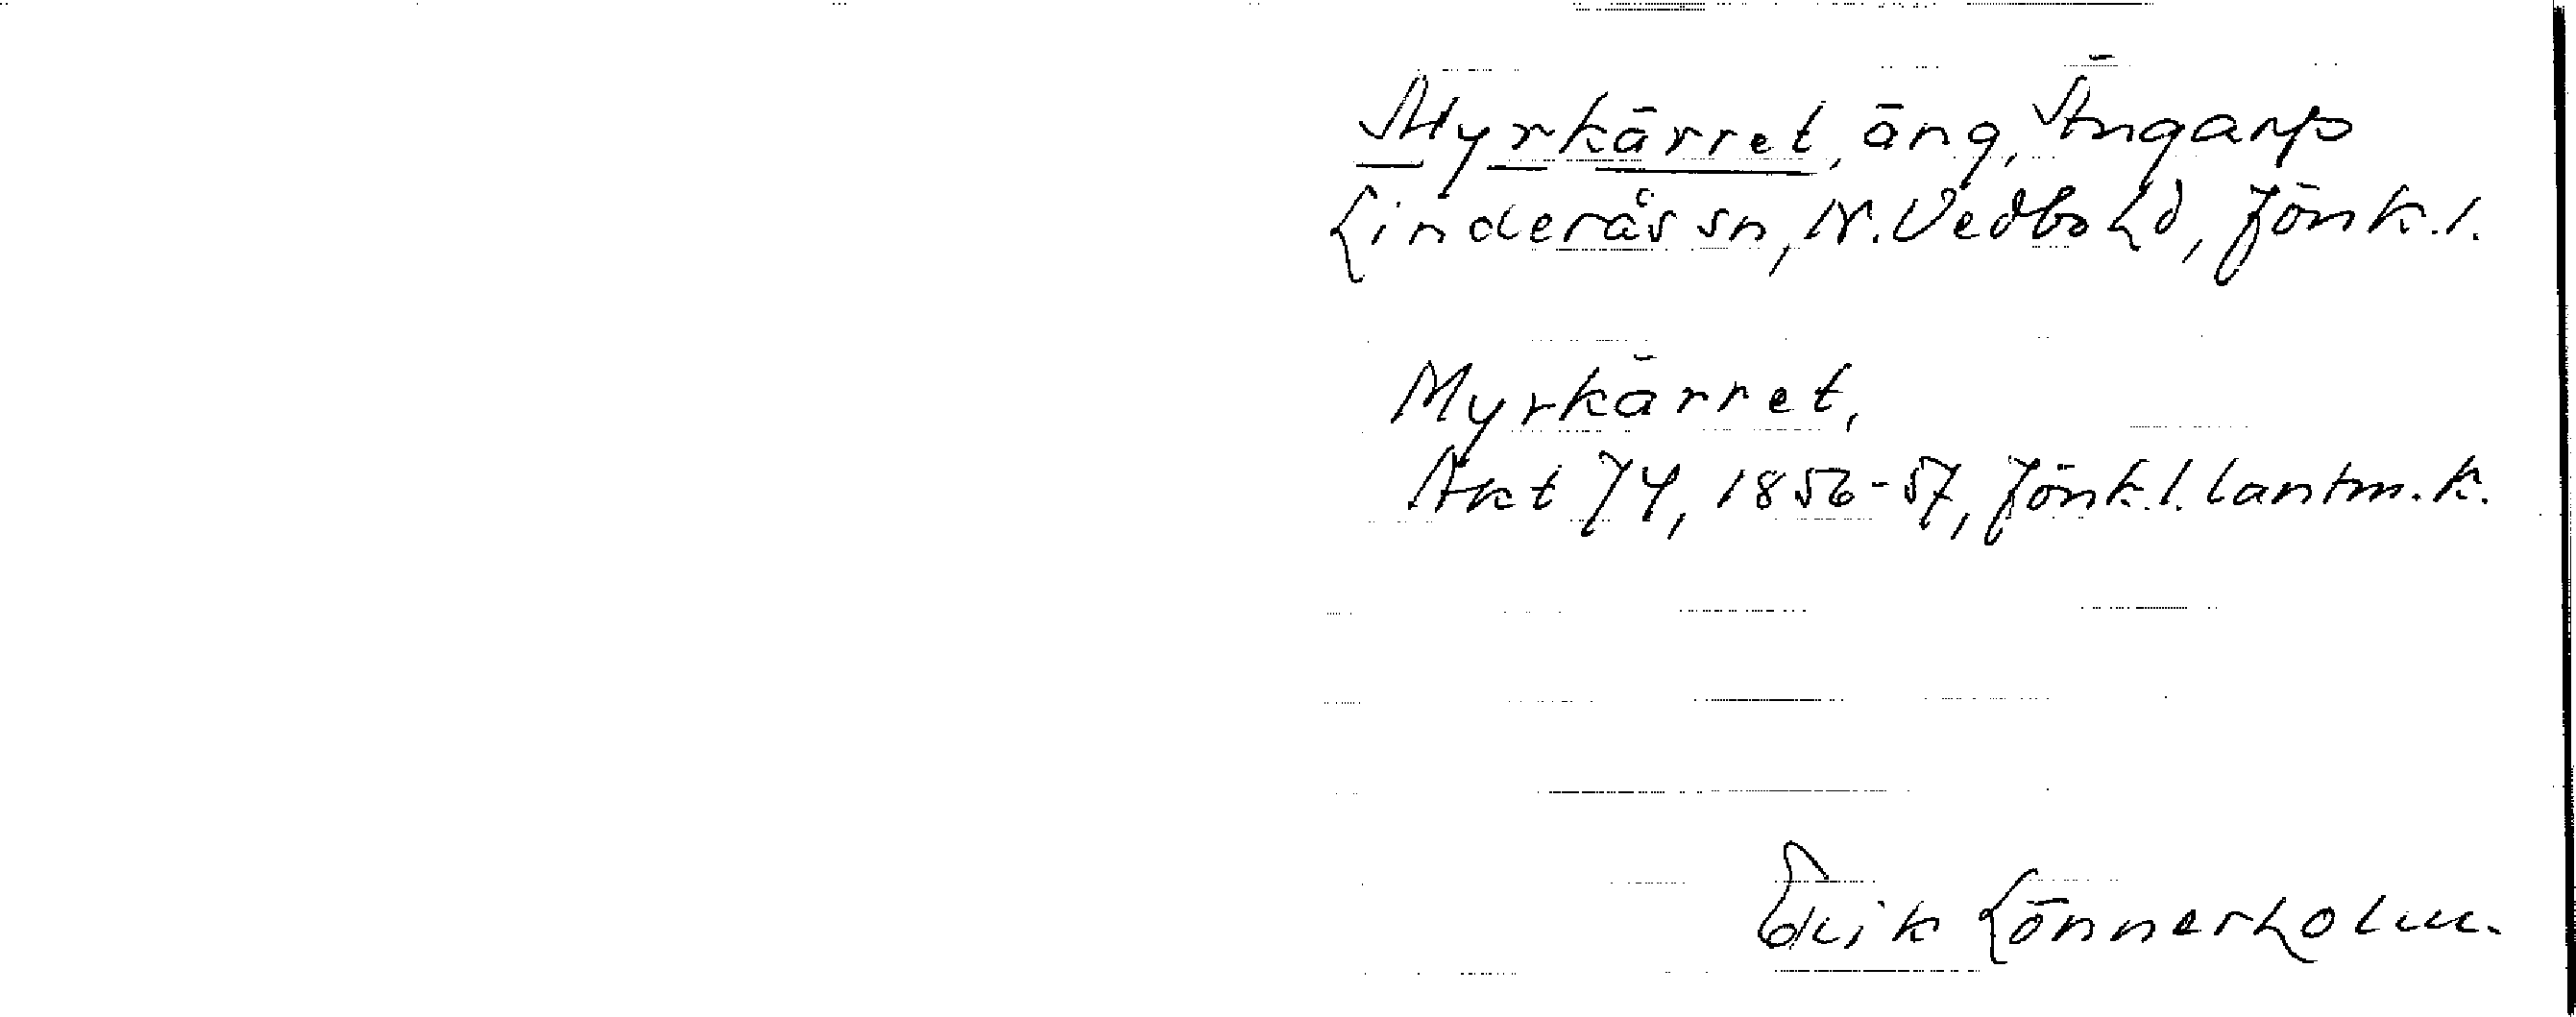 Myrkärret, äng, Ängarp
Linderås sn, N. Vedbo hd, Jönk. l.
Myrkärret,
Akt 74, 1856-57, Jönk. l. lantm. k.
Erik Lönnerholm.